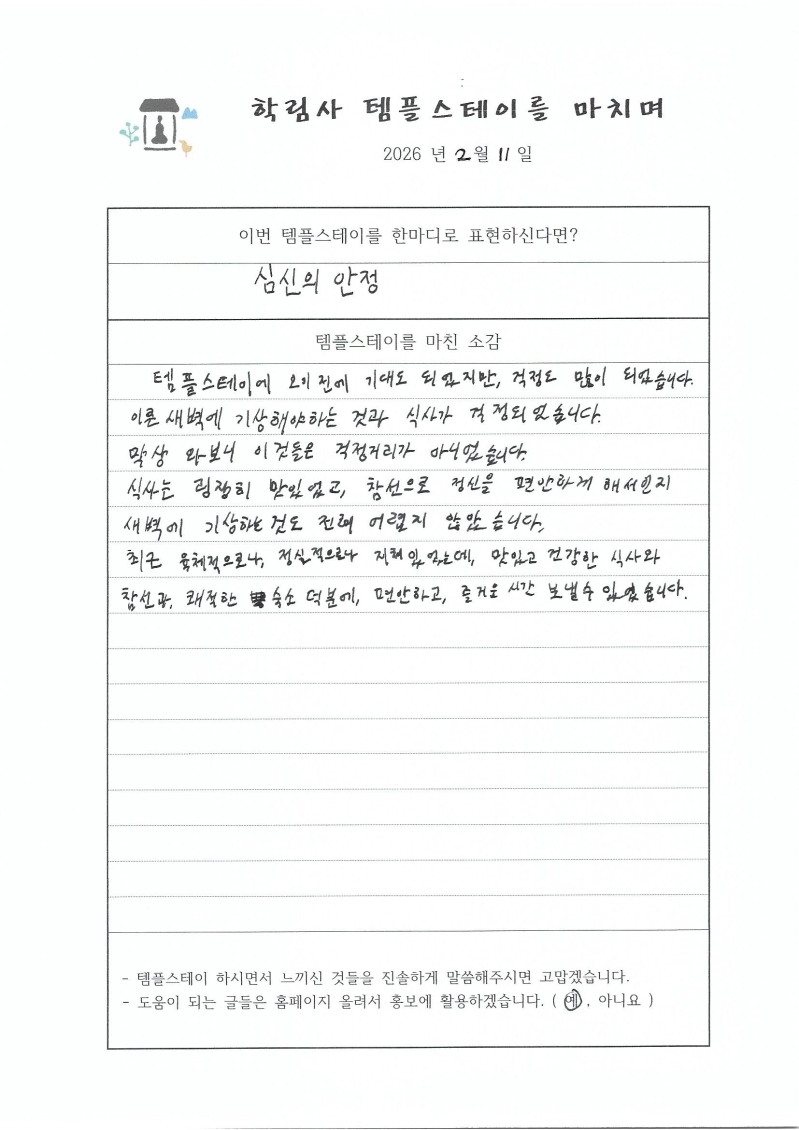 학림사 템플스테이를 마치며
2026 년 2월 11일
이번 템플스테이를 한마디로 표현하신다면?
심신의 안정
템플스테이를 마친 소감
템플스테이에 오기 전에 기대도 되었지만, 걱정도 많이 되었습니다.
이른 새벽에 기상해야하는 것과 식사가 걱정되었습니다.
막상 와보니 이것들은 걱정거리가 아니었습니다.
식사는 굉장히 맛있었고, 참선으로 정신을 편안하게 해서인지
새벽에 기상하는 것도 전혀 어렵지 않았습니다.
최근 육체적으로나, 정신적으로나 지쳐있었는데, 맛있고 건강한 식사와
참선과, 쾌적한 숙소 덕분에, 편안하고, 즐거운 시간 보낼수 있었습니다.
- 템플스테이 하시면서 느끼신 것들을 진솔하게 말씀해주시면 고맙겠습니다.
- 도움이 되는 글들은 홈페이지 올려서 홍보에 활용하겠습니다. ( 예 , 아니요 )